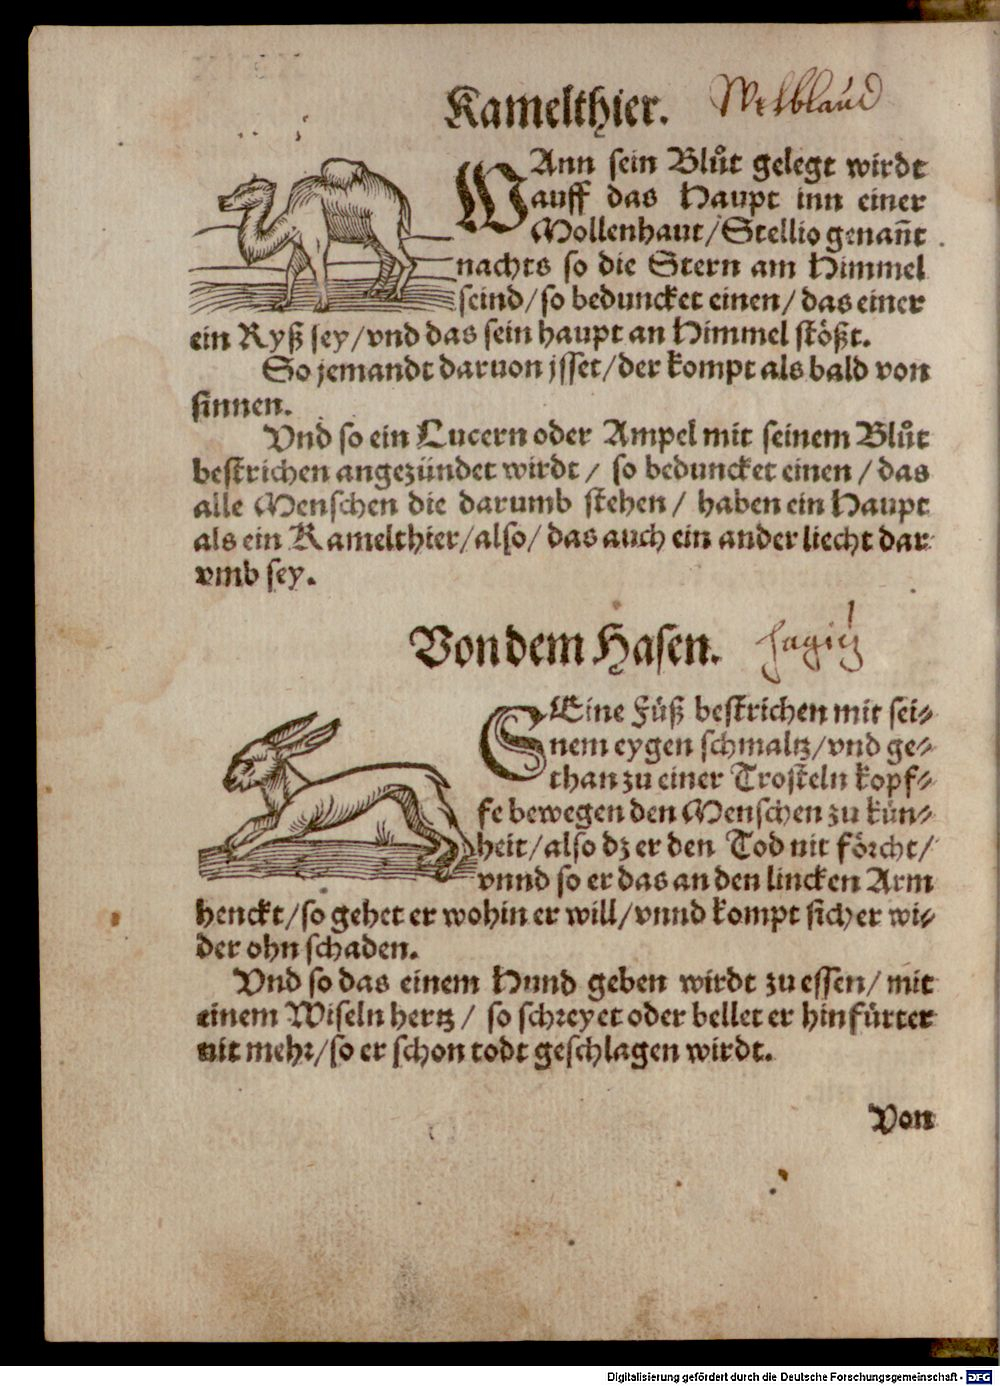 Kamelthier. Welblaud
WAnn sein Blůt gelegt wirdt
auff das Haupt inn einer
Mollenhaut/Stellio genañt
nachts so die Stern am Himmel
seind/so beduncket einen/das einer
ein Ryß sey/vnd das sein haupt an Himmel stößt.
So jemandt daruon jsset/der kompt als bald von
sinnen.
Vnd so ein Lucern oder Ampel mit seinem Blůt
bestrichen angezündet wirdt / so beduncket einen / das
alle Menschen die darumb stehen / haben ein Haupt
als ein Kamelthier/also/das auch ein ander liecht dar
vmb sey.
Von dem Hasen.
SEine Füß bestrichen mit sei-
nem eygen schmaltz/vnd ge-
than zu einer Trosteln kopf-
fe bewegen den Menschen zu kün-
heit/also dz er den Tod nit förcht/
vnnd so er das an den lincken Arm
henckt/so gehet er wohin er will/vnnd kompt sicher wi-
der ohn schaden.
Vnd so das einem Hund geben wirdt zu essen/ mit
einem Wiseln hertz / so schreyet oder bellet er hinfürter
nit mehr/so er schon todt geschlagen wirdt.
Von
Digitalisierung gefördert durch die Deutsche Forschungsgemeinschaft - DFG